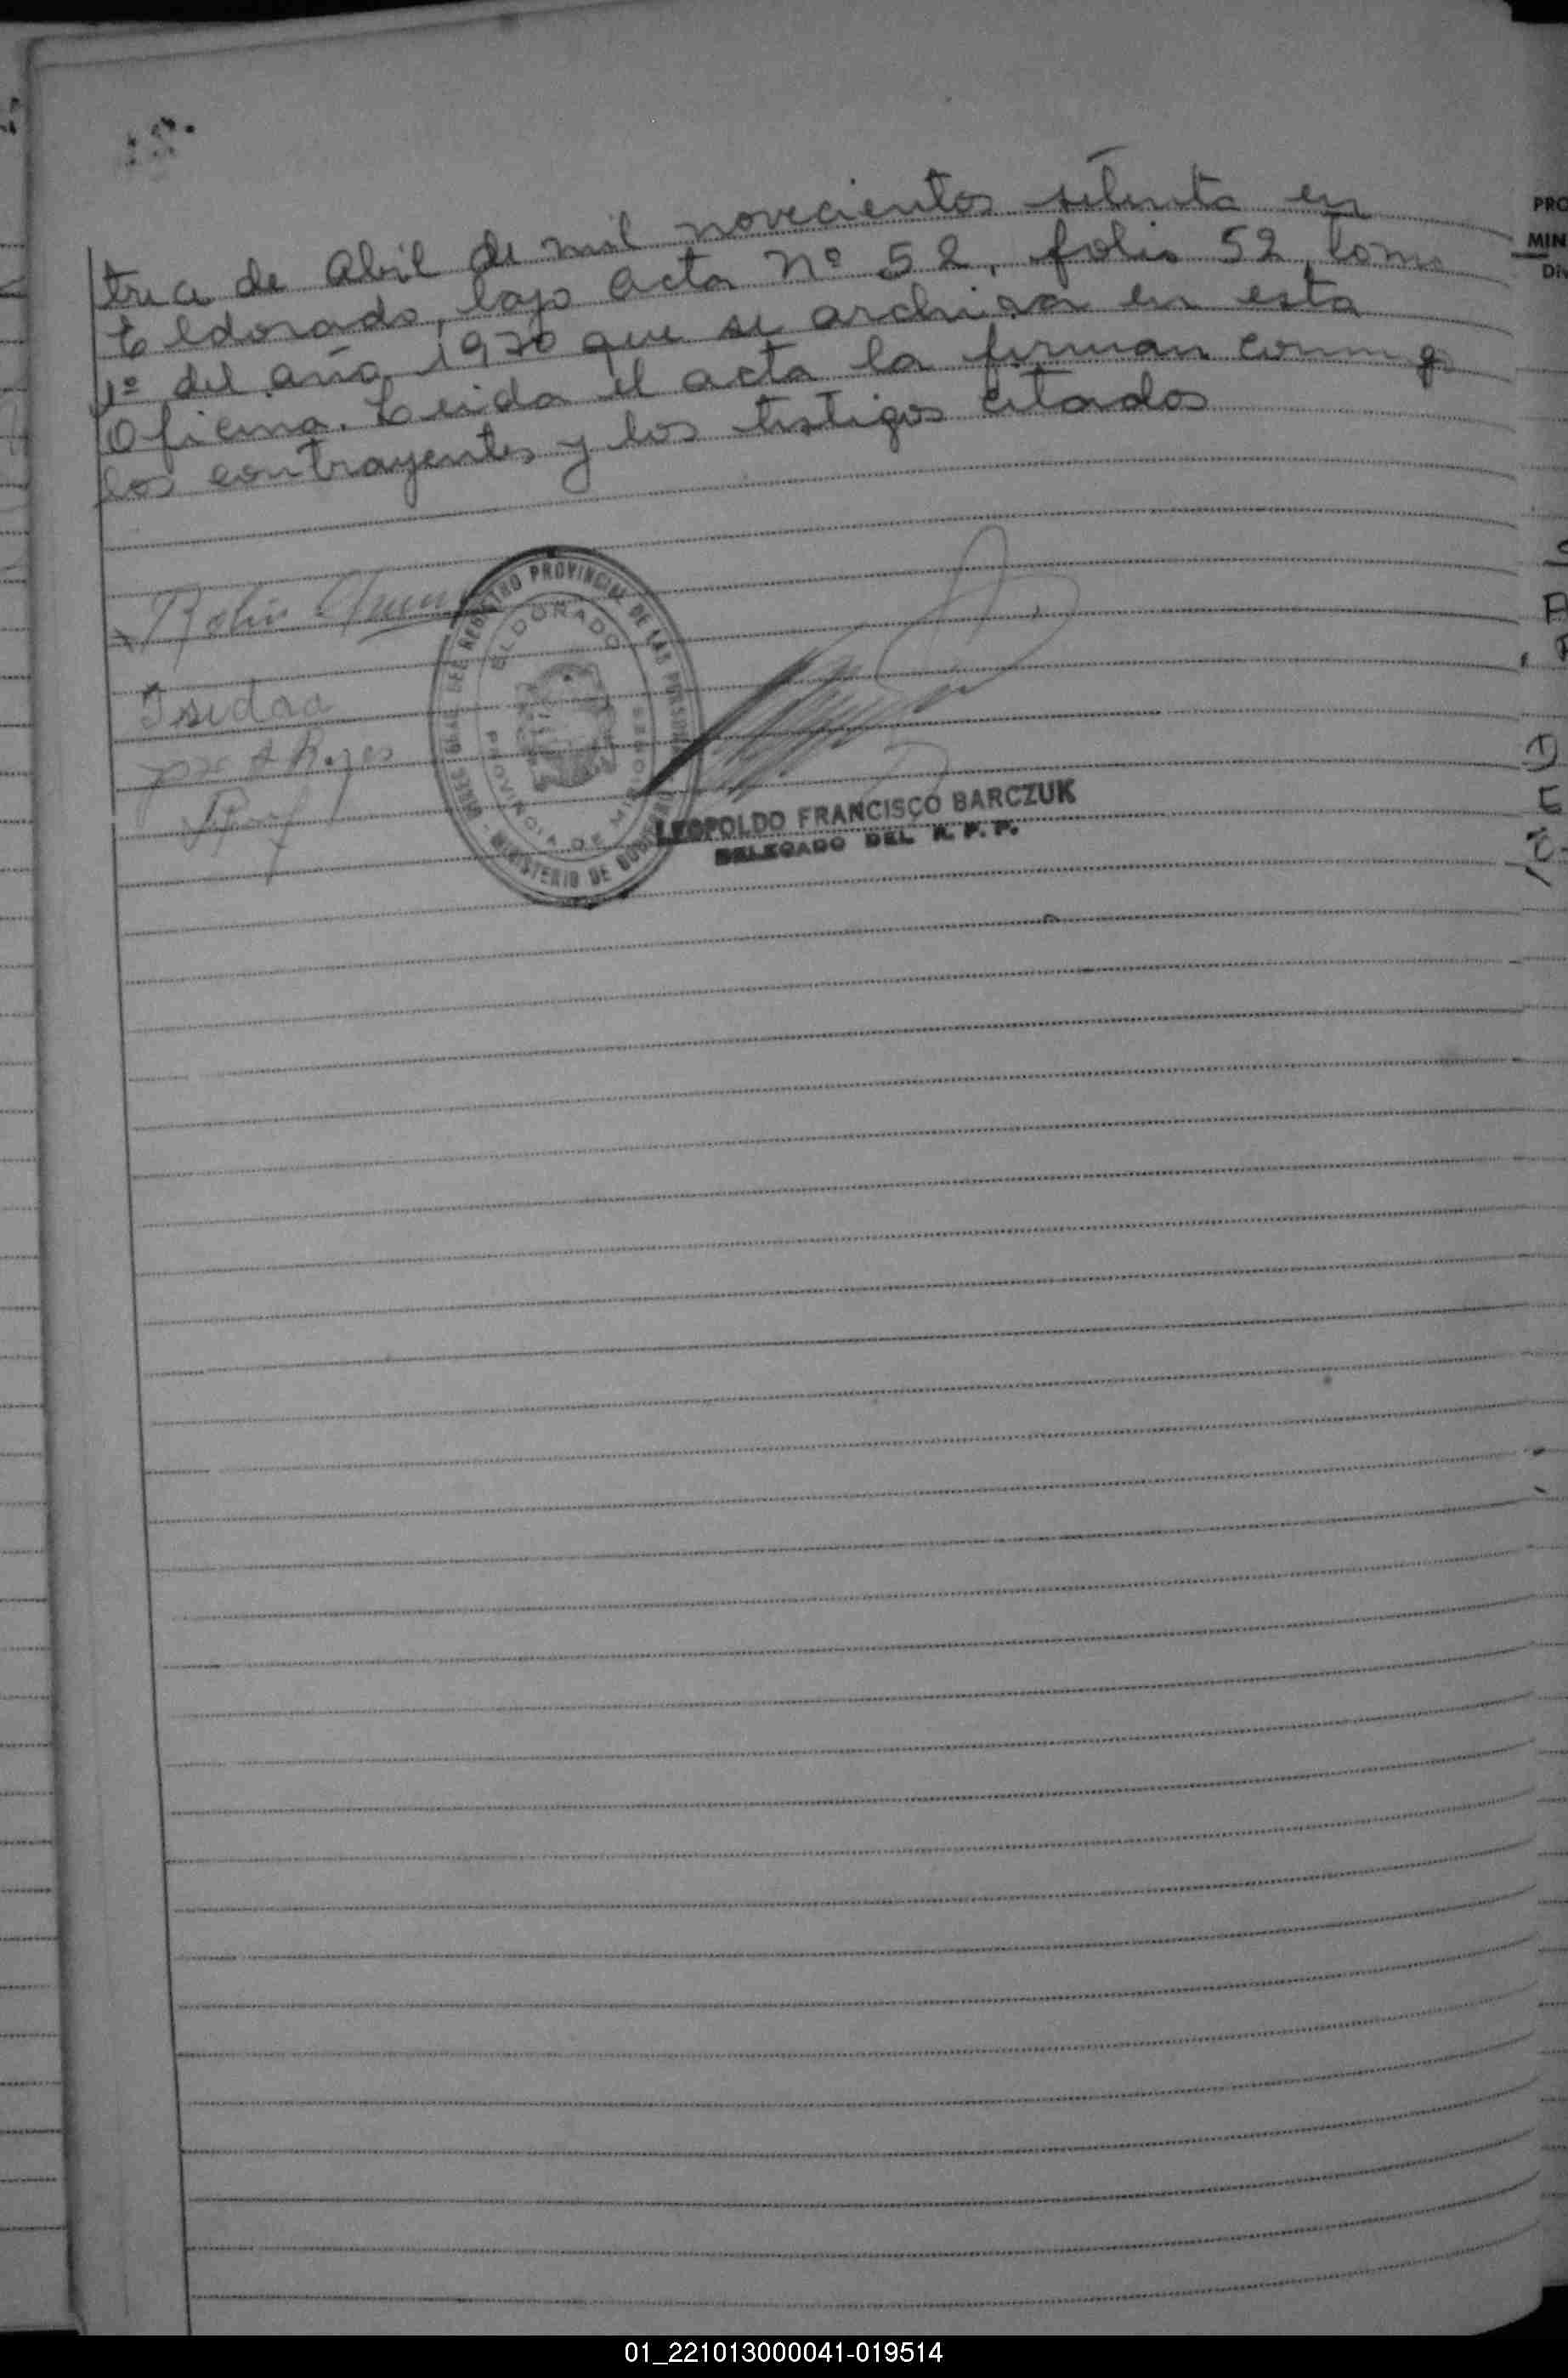 trece de Abril de mil novecientos setenta en
Eldorado, bajo acta Nº 52, folio 52, tomo
1º del año 1970 que se archiva en esta
Oficina. Leida el acta la firman conmigo
los contrayentes y los testigos citados
Isidaa
REGISTRO PROVINCIAL DE LAS PERSONAS
MINISTERIO DE GOBIERNO
ELDORADO
PROVINCIA DE MISIONES
LEOPOLDO FRANCISCO BARCZUK
DELEGADO DEL R. P. P.
PRO
MIN
Div
01_221013000041-019514